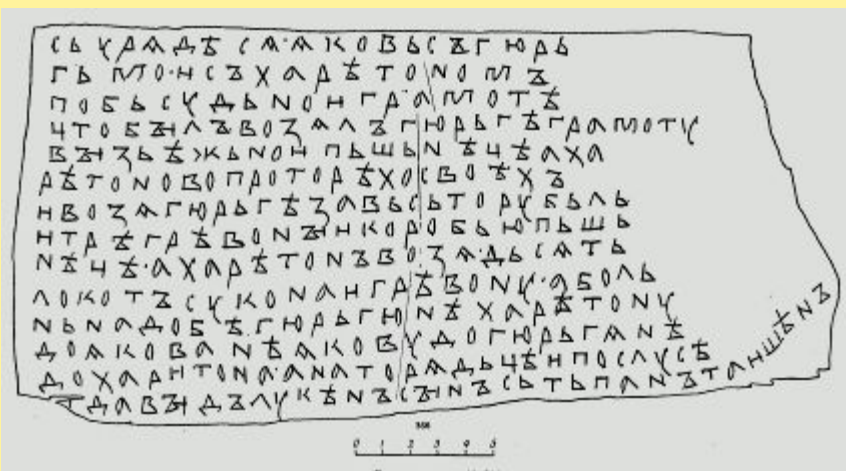 СЬУРѦДѢСѦ·ѦКОВЬСЪГЮРЬ
ГЬМО·ИСЪХАРѢТОНОМЪ
ПОБЬСУДЬНОИГРАМОТѢ
ЦТОБЪІЛЪВОЗАЛЪГЮРЬГѢГРАМОТУ
ВЪІЗЬѢЖЬНОИПЬШЬНѢЦѢАХА
РѢТОНОВОПРОТОРѢХОСВОѢХЪ
ИВОЗѦГЮРЬГѢЗАВЬСЬТОРУБЬЛЬ
ИТРѢГРѢВОНЪІИКОРОБЬЮПЬШЬ
НѢЦѢ·АХАРѢТОНЪВОЗѦ·ДЬСѦТЬ
ЛОКОТЪСУКОНАИГРѢВОНУ·АБОЛЬ
НЬНАДОБѢ·ГЮРЬГЮНѢХАРѢТОНУ
ДОѦКОВАНѢѦКОВУДОГЮРЬГАНѢ
ДОХАРИТОНА·АНАТОРѦДЬЦѢИПОСЛУСѢ
ТДАВЪІДЪЛУКѢНЪСЪІНЪСЬТЬПАНЪТАИШѢНЪ
366
0 1 2 3 4 5